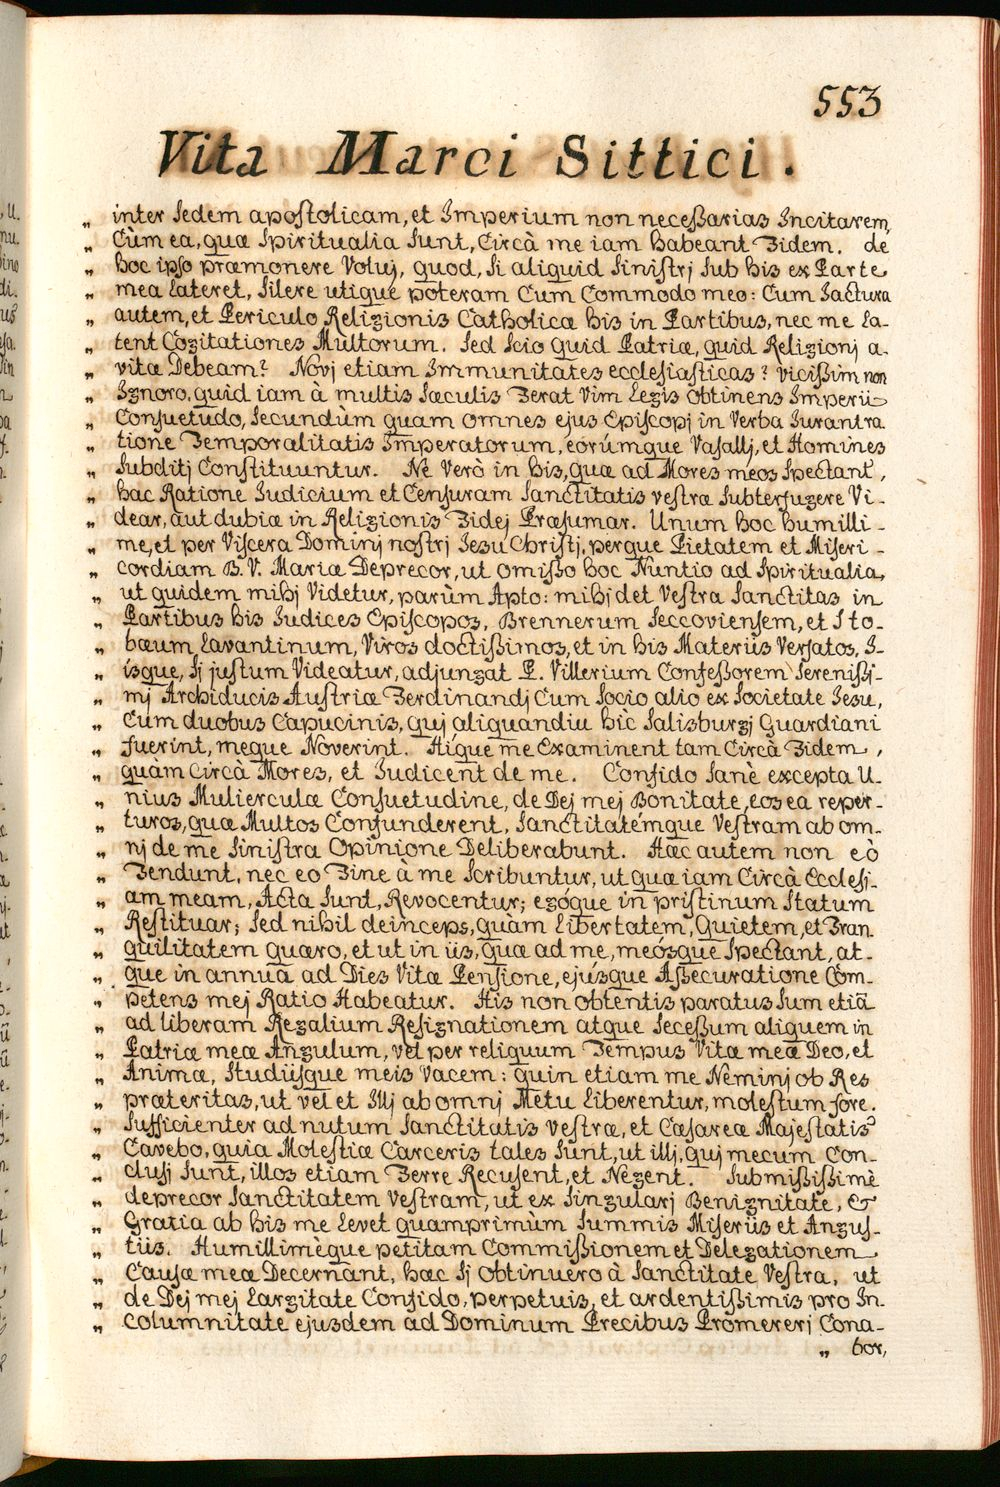 553
Vita Marci Sittici.
„ inter Sedem apostolicam, et Imperium non neceßarias Incitarem,
„ Cùm ea, quæ Spiritualia Sunt, Circà me iam habeant Fidem. de
„ hoc ipso præmonere Voluj, quod, Si aliquid Sinistrj Sub his ex Parte
„ mea Lateret, Silere utique poteram Cum Commodo meo: Cum Jactura
„ autem, et Periculo Religionis Catholicæ his in Partibus, nec me La-
„ tent Cogitationes Multorum. Sed Scio quid Patriæ, quid Religionj a-
„ vitæ Debeam? Novj etiam Immunitates ecclesiasticas? vicißim non
„ Ignoro, quid iam à multis Sæculis Ferat Vim Legis obtinens Imperii
„ Consuetudo, Secundùm quam omnes ejus Episcopj in Verba Jurant ra
„ tione Temporalitatis Imperatorum, eorúmque Vasallj, et Homines
„ Subditj Constituuntur. Ne Verò in his, quæ ad Mores meos Spectant,
„ hac Ratione Judicium et Censuram Sanctitatis vestræ Subterfugere Vi-
„ dear, aut dubiæ in Religionis Fidej Præsumar. Unum hoc humilli-
„ me, et per Viscera Dominj nostrj Jesu Christj, perque Pietatem et Miseri-
„ cordiam B. V. Mariæ Deprecor, ut omißo hoc Nuntio ad Spiritualia,
„ ut quidem mihj Videtur, parùm Apto: mihj det Vestra Sanctitas in
„ Partibus his Judices Episcopos, Brennerum Seccoviensem, et Sto-
„ bæum Lavantinum, Viros doctißimos, et in his Materiis Versatos, I-
„ isque, Sj justum Videatur, adjungat P. Villerium Confeßorem Sereniß-
„ mj Archiducis Austriæ Ferdinandj Cum Socio alio ex Societate Jesu,
„ Cum duobus Capucinis, quj aliquandiu hic Salisburgj Guardiani
„ fuerint, meque Noverint. Hique me Examinent tam Circà Fidem,
„ quàm Circà Mores, et Judicent de me. Confido Sanè excepta U-
„ nius Mulierculæ Consuetudine, de Dej mej Bonitate, eos ea reper-
„ turos, quæ Multos Confunderent, Sanctitatémque Vestram ab om-
„ nj de me Sinistra Opinione Deliberabunt. Hæc autem non eò
„ Tendunt, nec eo Fine à me Scribuntur, ut quæ iam Circà Ecclesi-
„ am meam, Acta Sunt, Revocentur; egóque in pristinum Statum
„ Restituar; Sed nihil deinceps, quàm Libertatem, Quietem, et Tran
„ quilitatem quæro, et ut in iis, quæ ad me, meósque Spectant, at-
„ que in annuâ ad Dies Vitæ Pensione, ejúsque Aßecuratione Com-
„ petens mej Ratio Habeatur. His non obtentis paratus Sum etiã
„ ad liberam Regalium Resignationem atque Seceßum aliquem in
„ Patriæ meæ Angulum, vel per reliquum Tempus Vitæ meæ Deo, et
„ Animæ, Studiisque meis vacem: quin etiam me Neminj ob Res
„ præteritas, ut vel et Illj ab omnj Metu Liberentur, molestum fore.
„ Sufficienter ad nutum Sanctitatis vestræ, et Cæsareæ Majestatis
„ Cavebo, quia Molestiæ Carceris tales Sunt, ut illj, quj mecum Con-
„ clusj Sunt, illos etiam Ferre Recusent, et Negent. Submißißimè
„ deprecor Sanctitatem Vestram, ut ex Singularj Benignitate, &
„ Gratia ab his me Levet quamprimùm Summis Miseriis et Angus-
„ tiis. Humillimèque petitam Commißionem et Delegationem
„ Causæ meæ Decernant, hæc Sj obtinuero à Sanctitate Vestra, ut
„ de Dej mej Largitate Confido, perpetuis, et ardentißimis pro In-
„ columnitate ejusdem ad Dominum Precibus Promererj Cona-
„ bor,